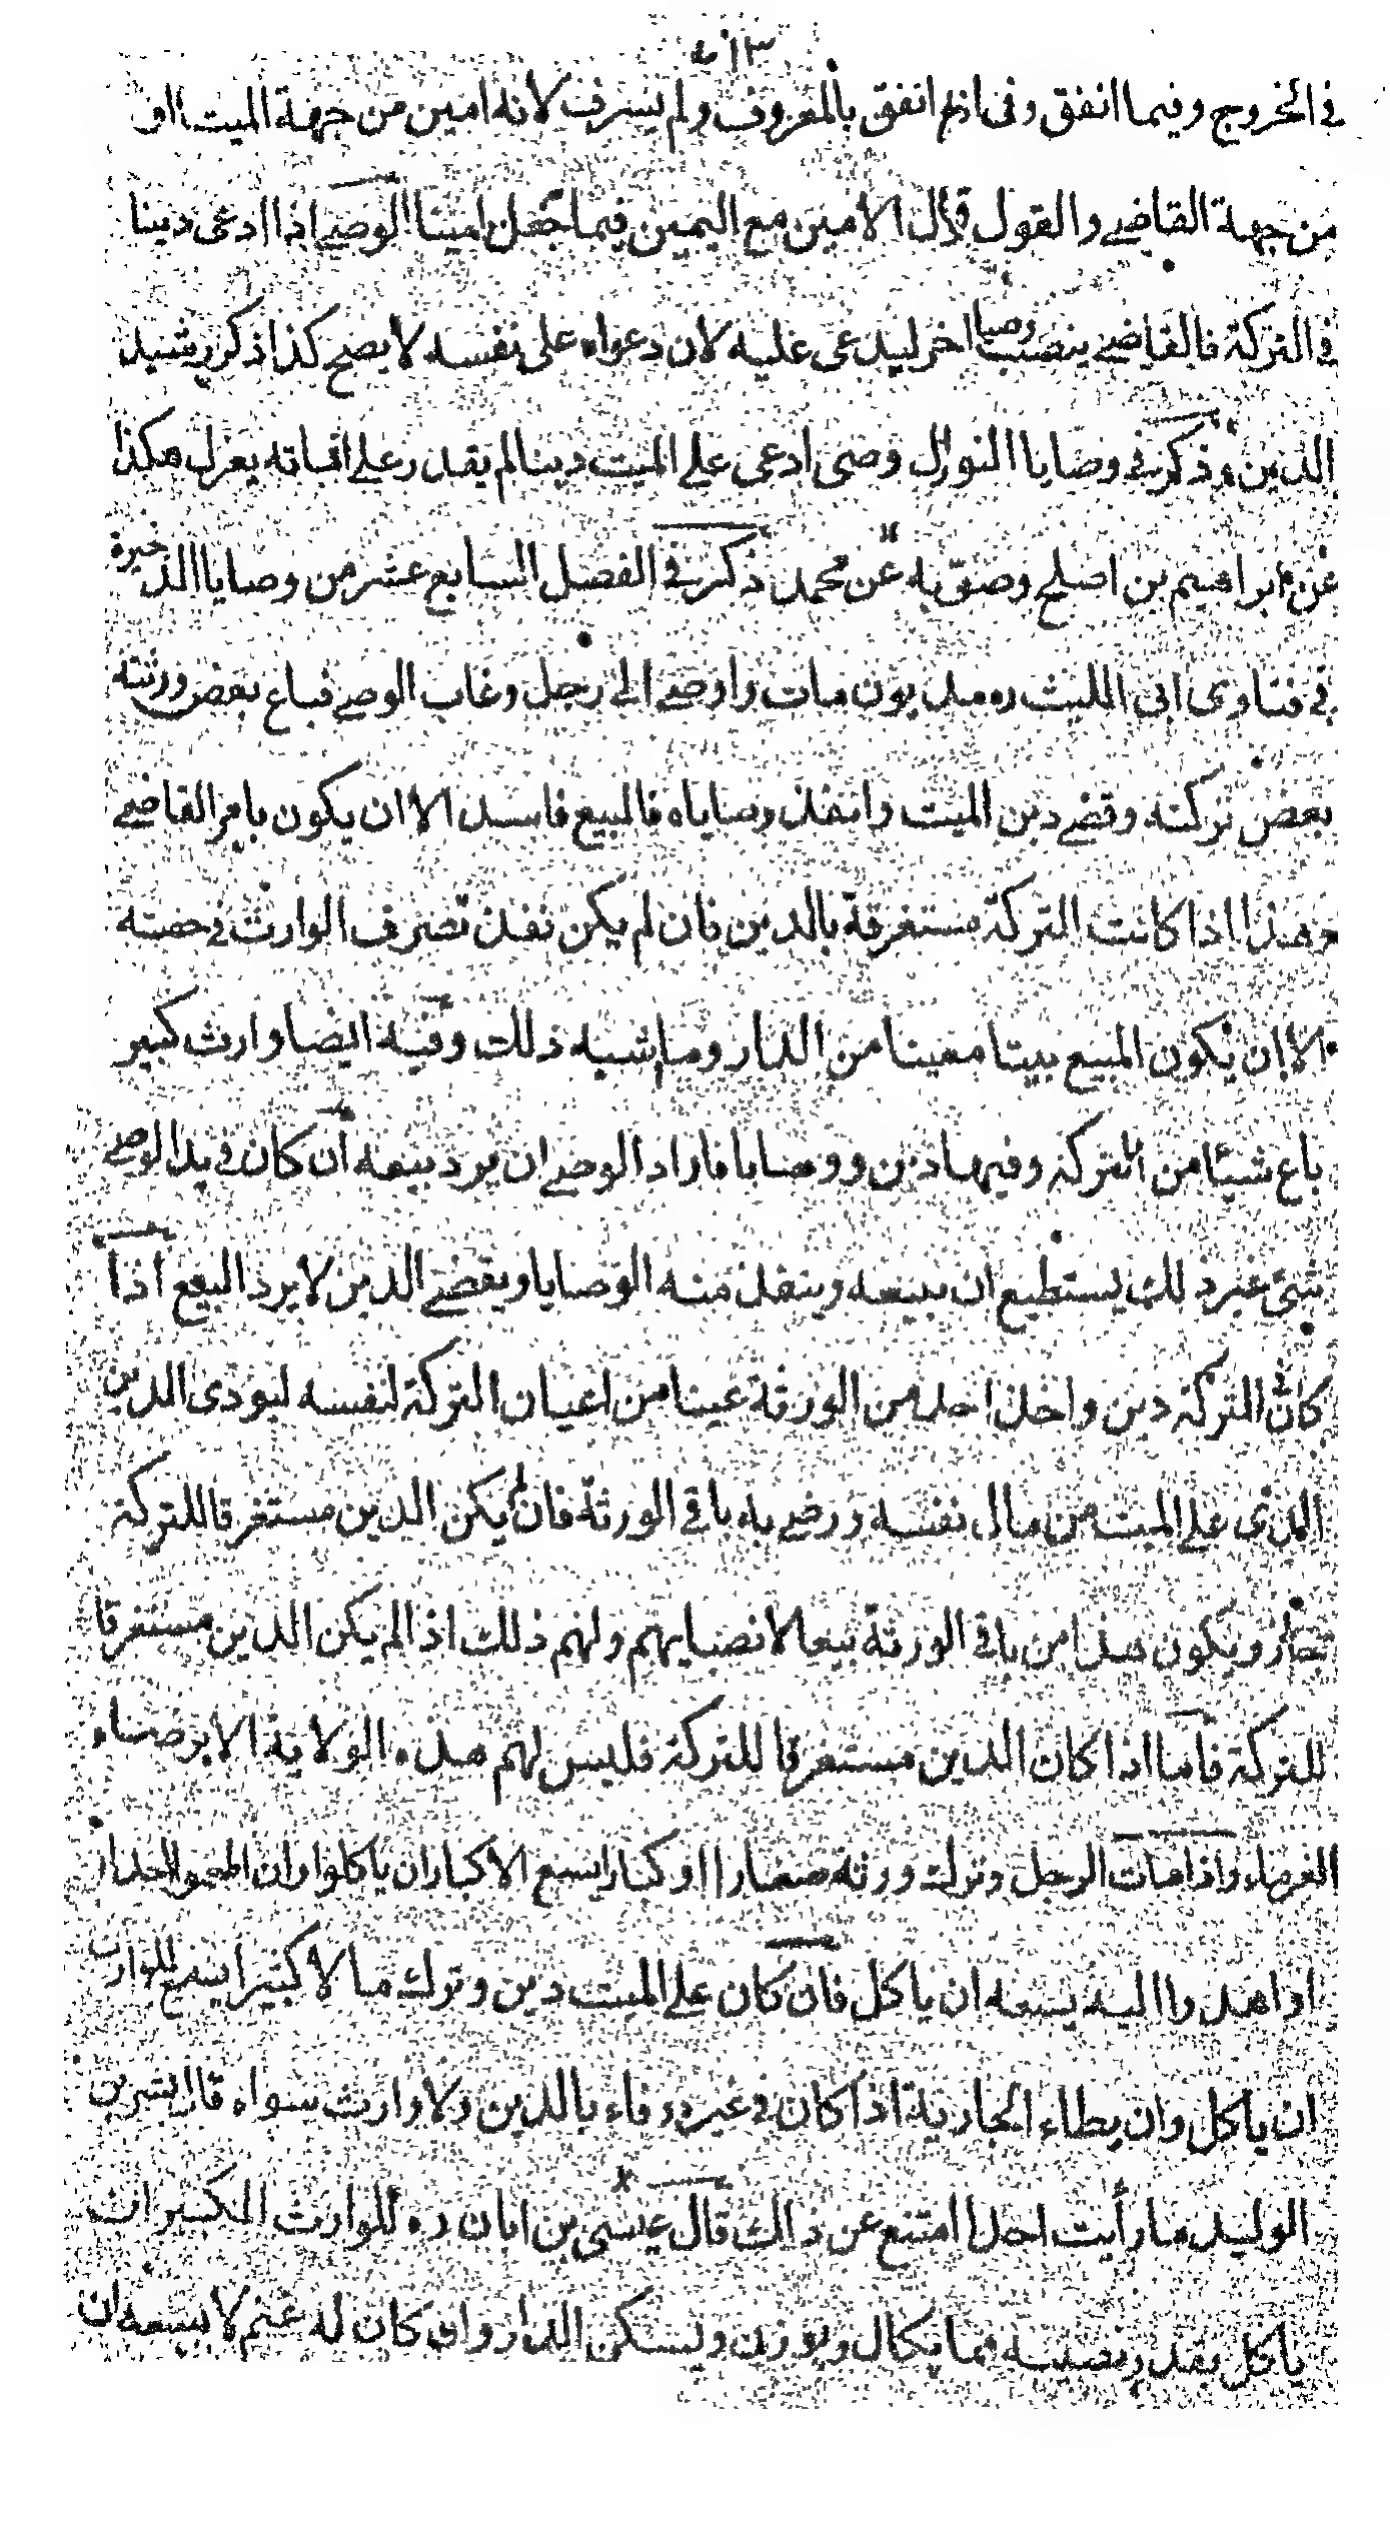 في الخروج وفيما انفق وفى انه انفق بالمعروف ولم يسرف لانه امين من جهة الميت او
من جهة القاضي والقول قول الامين مع اليمين فيما جعل امينا الوصي اذا ادعى دينا
في التركة فالقاضي ينصب وصيا اخر ليدعى عليه لان دعواه على نفسه لا يصح كذا ذكر رشيد
الدين وذكر في وصايا النوازل وصى ادعى على الميت دينا لم يقدر على اثباته يعزل هكذا
عن ابراهيم بن اصلح وصوبه عن محمد ذكر في الفصل السابع عشر من وصايا الذخيرة
في فتاوى ابى الليث ره مديون مات واوصي الى رجل وغاب الوصي فباع بعض ورثته
بعض تركته وقضي دين الميت وانفذ وصاياه فالبيع فاسد الا ان يكون بامر القاضي
وهذا اذا كانت التركة مستغرقة بالدين فان لم يكن نفذ تصرف الوارث في حصته
الا ان يكون المبيع بيتا معينا من الدار وما اشبه ذلك وفيه ايضا وارث كبير
باع شيئا من التركة وفيها دين ووصايا فاراد الوصي ان يرد بيعه ان كان في يد الوصي
شئ غير ذلك يستطيع ان يبيعه وينفذ منه الوصايا ويقضي الدين لا يرد البيع اذا
كان في التركة دين واخذ احد من الورثة عينا من اعيان التركة لنفسه ليودى الدين
الذى على الميت من مال نفسه ورضي به باقي الورثة فان لم يكن الدين مستغرقا للتركة
جاز ويكون هذا من باقي الورثة بيعا لانصبايهم ولهم ذلك اذا لم يكن الدين مستغرقا
للتركة فاما اذا كان الدين مستغرقا للتركة فليس لهم هذه الولاية الا برضاء
الغرماء واذا مات الرجل وترك ورثة صغارا او كبارا يسع الاكبار ان ياكلوا وان
او اهدوا اليه يسعه ان ياكل فان كان على الميت دين وترك مالا كثيرا يسع للوارث
ان ياكل وان يطاء الجارية اذا كان في غيره وفاء بالدين ولا وارث سواه قال بشر بن
الوليد ما رأيت احدا امتنع عن ذلك قال عيسى بن ابان ره للوارث الكبير ان
ياكل بقدر نصيبه مما يكال ويوزن ويسكن الدار وان كان له غنم لا يسعه ان